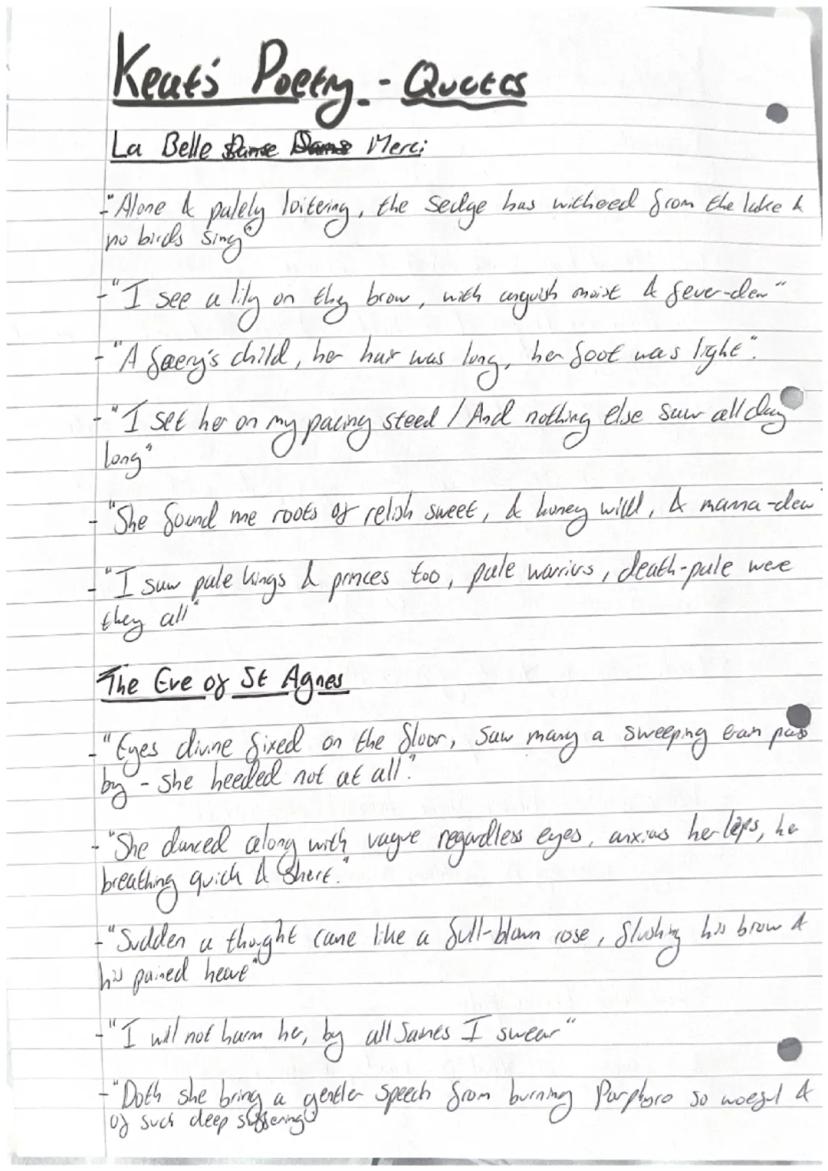 Keats Poetry - Quotes
La Belle Dame Merci
- "Alone & palely loitering, the sedge has withered from the lake &
no birds sing"
- "I see a lily on thy brow, with anguish moist & fever-dew"
- "A faery's child, her hair was long, her foot was light".
- "I set her on my pacing steed / And nothing else saw all day
long"
- "She found me roots of relish sweet, & honey wild, & manna-dew
- "I saw pale kings & princes too, pale warriors, death-pale were
they all"
The Eve of St Agnes
- "Eyes divine fixed on the floor, saw many a sweeping train pass
by - she heeded not at all".
- "She danced along with vague regardless eyes, anxious her lips, he
breathing quick & short."
- "Sudden a thought came like a full-blown rose, flushing his brow &
his pained heart"
- "I will not harm her, by all saints I swear"
- "Doth she bring a gentler speech from burning Porphyro so woeful &
of such deep suffering"